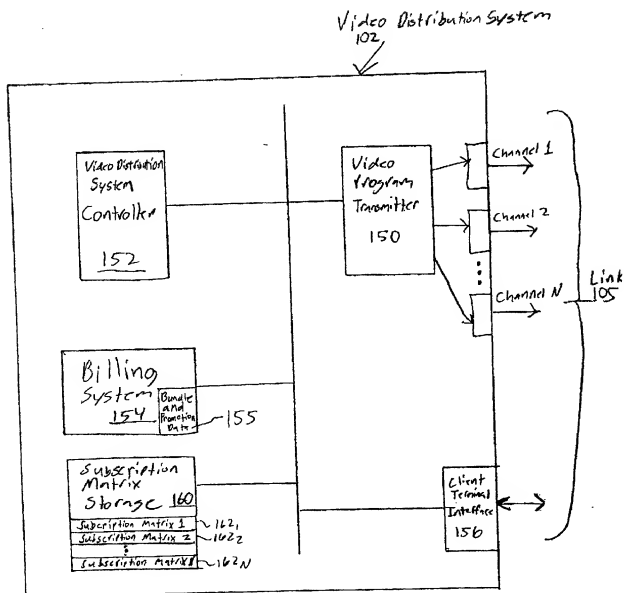 Video Distribution System
102
Video Distribution
System
Controller
152
Video
Program
Transmitter
150
Channel 1
Channel 2
Channel N
Link
105
Billing
System
154
Bundle
and
Promotion
Data
155
Subscription
Matrix
Storage 160
Subscription Matrix 1
162₁
Subscription Matrix 2
162₂
Subscription Matrix N
162N
Client
Terminal
Interface
156